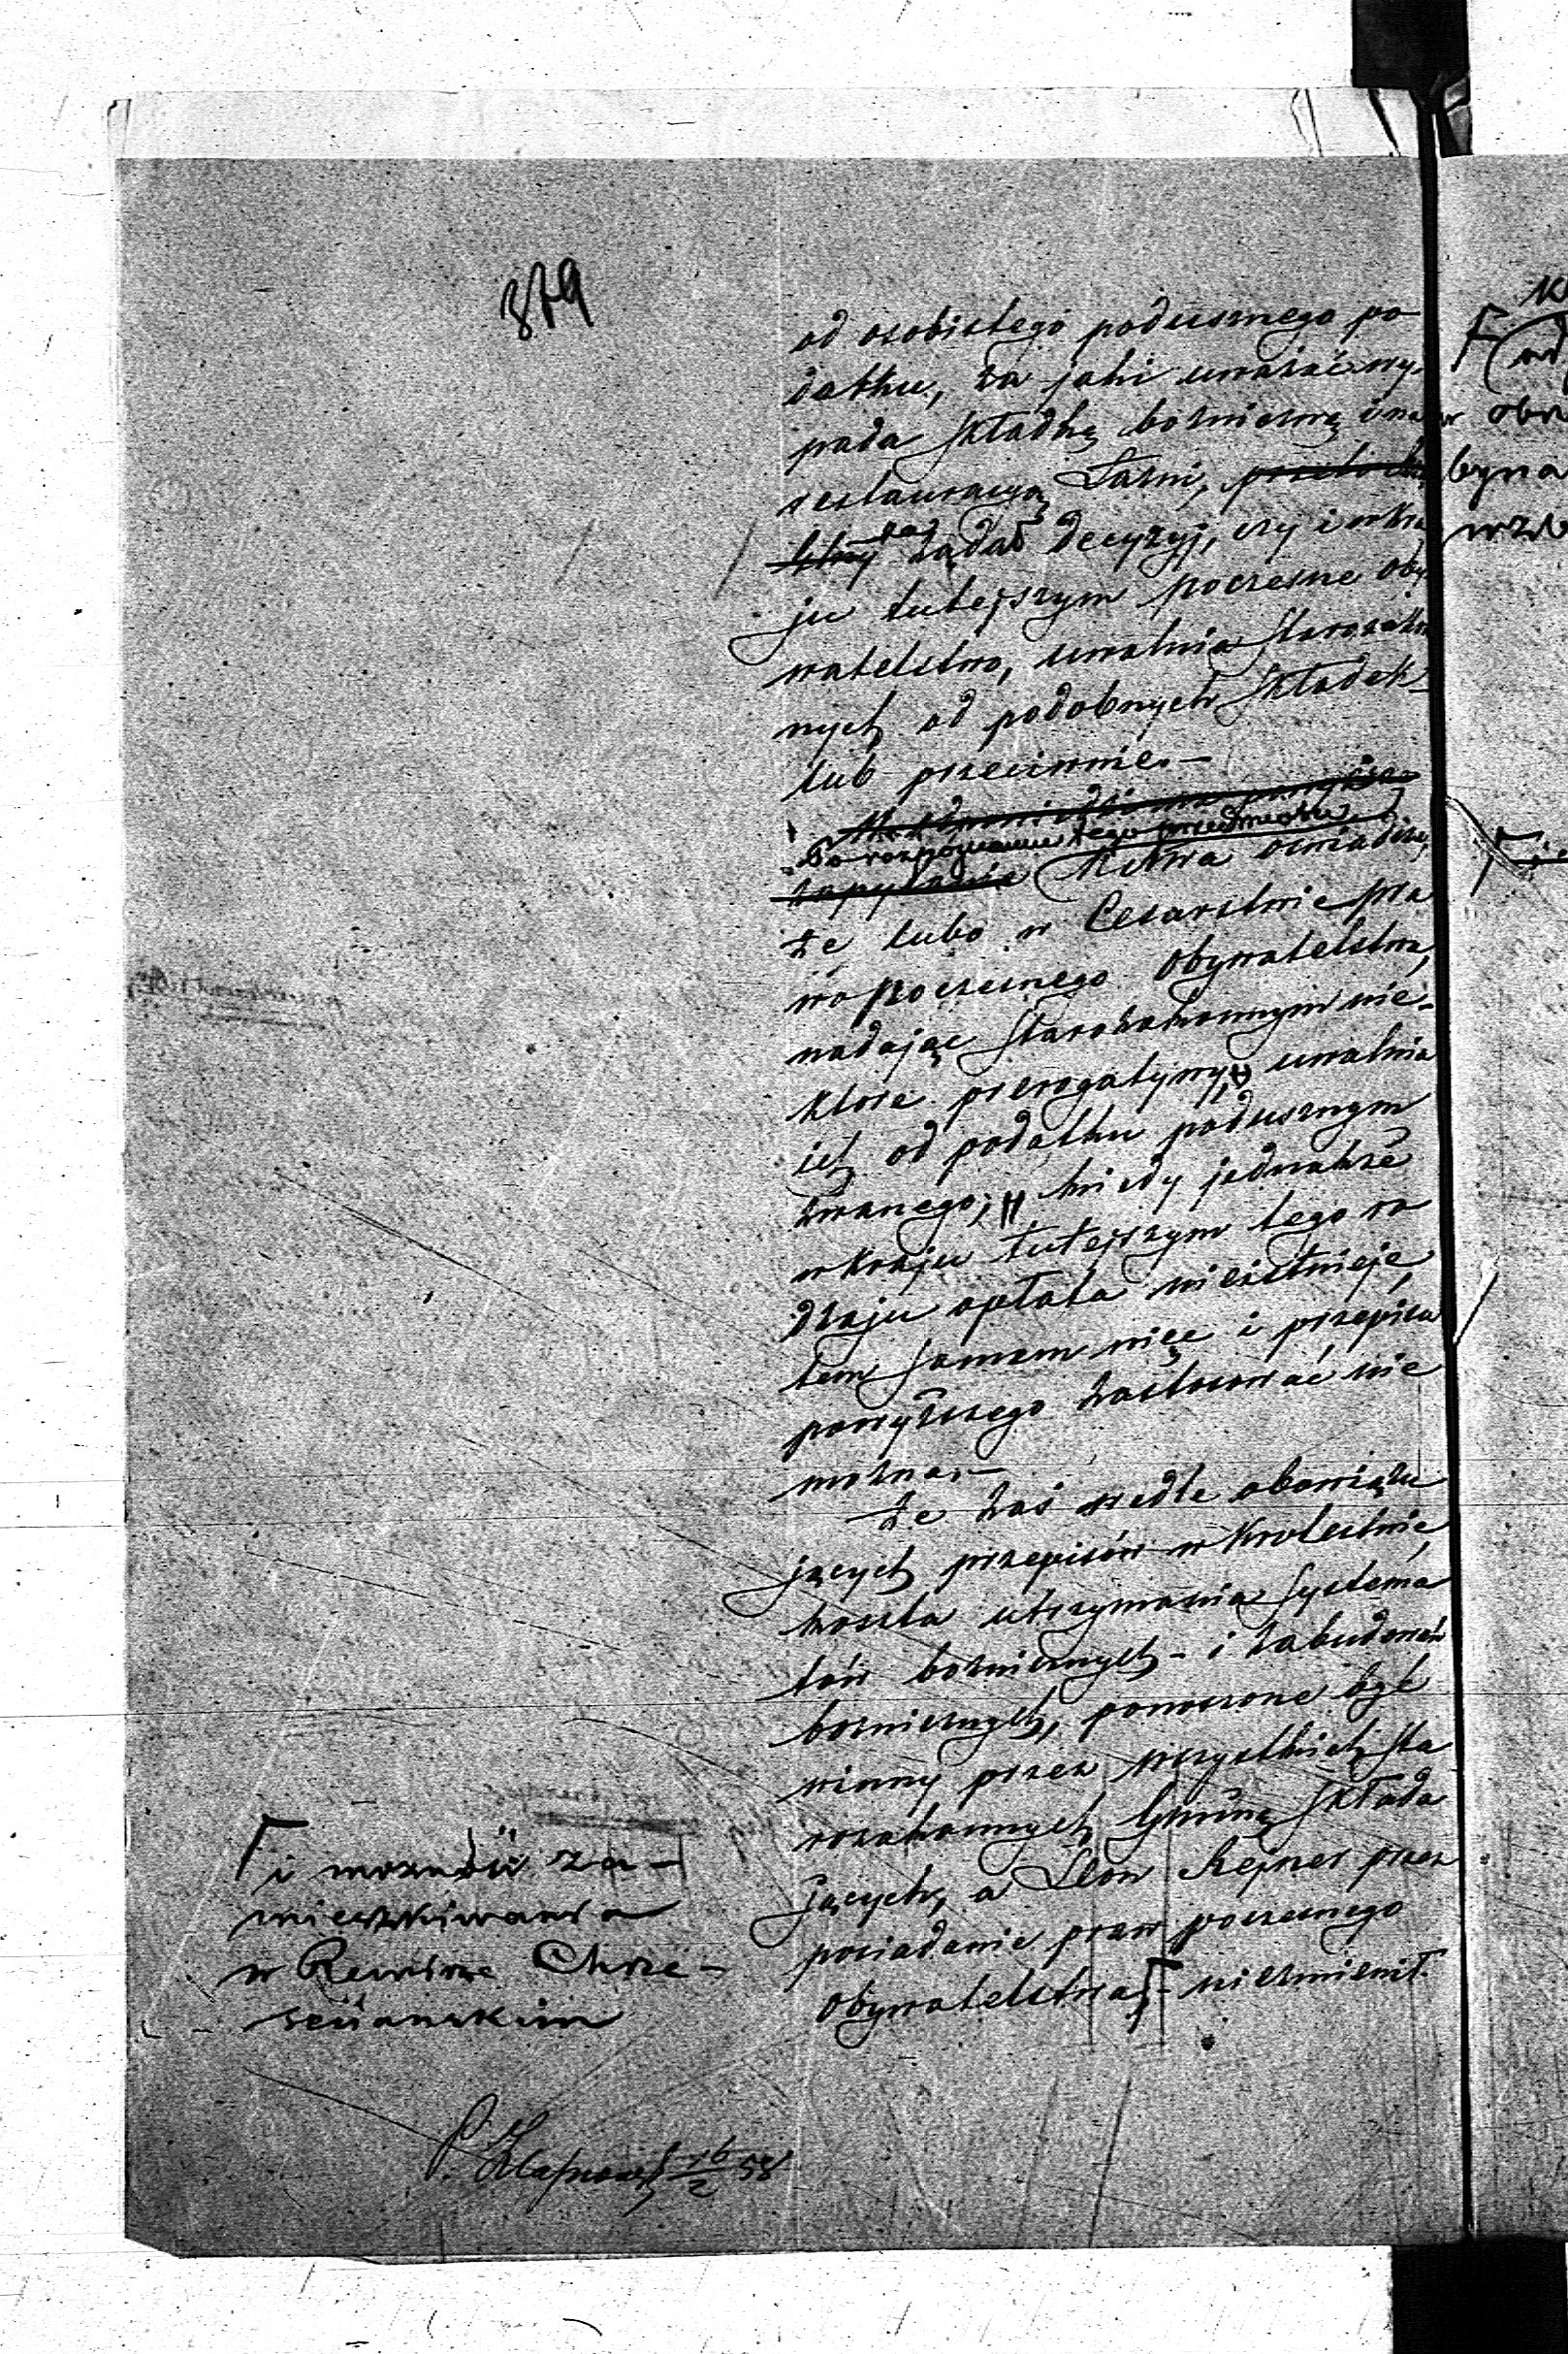 879
od osobistego podusznego po-
datku, za jaki uważać wy-
pada składkę bożniczną i na
restauracyą Łaźni,
żąda decyzyj, czy i w kra
ju tutejszym poczesne oby
watelstwo, uwalnia Starozakon
nych od podobnych składek
lub przeciwnie.—
Po rozpoznaniu tego przedmiotu
zapytanie oświadcza,
że lubo w Cesarstwie pra
wo poczesnego Obywatelstwa,
nadając Starozakonnym nie-
które prerogatywy, uwalnia
ich od podatku podusznym
zwanego; kiedy jednakże
w kraju tutejszym tego ro
dzaju opłata nieistnieje,
tem samem więc i przepisu
powyższego zastosować nie
można.—
że zaś wedle obowiązu
jących przepisów w Królestwie,
koszta utrzymania systema
tów bożnicznych i zabudowań
bożnicznych, ponoszone być
winny przez wszystkich sta
rozakonnych Gminę składa
jących, a Leon przez
posiadanie praw poczesnego
obywatelstwa niezmienił.
i możności za-
mieszkiwania
w Rewirze Chrze-
ściańskim
16/2 58